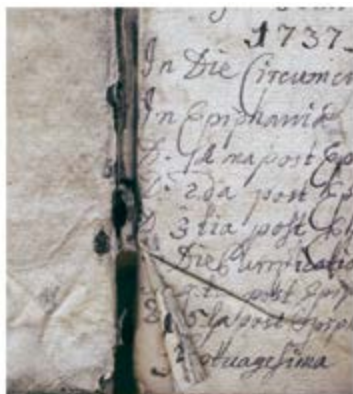 1737.
In Die Circumci
In Epiphania
D. 1ma post Ep
D. 2da post Ep
D. 3tia post Ep
Die Purificatio
post Epip
5ta post Epiph
tuagesima